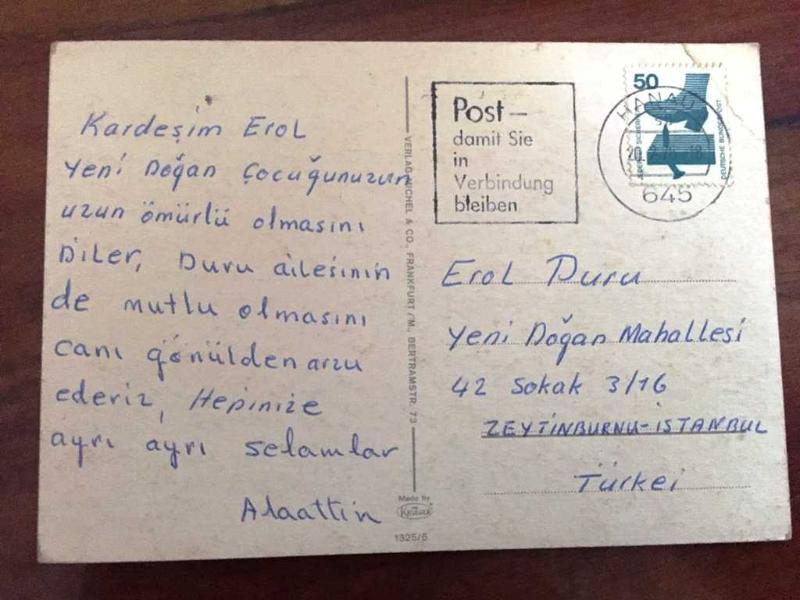 Kardeşim Erol
Yeni Doğan Çocuğunuzun
uzun ömürlü olmasını
Diler, Duru ailesinin
de mutlu olmasını
canı gönülden arzu
ederiz, Hepinize
ayrı ayrı selamlar
Alaattin
VERLAG MICHEL & CO., FRANKFURT/M., BERTRAMSTR. 73
Made by
Krüger
1325/6
Post –
damit Sie
in
Verbindung
bleiben
50
DEUTSCHE BUNDESPOST
HANAU
645
Erol Duru
Yeni Doğan Mahallesi
42 Sokak 3/16
ZEYTİNBURNU-İSTANBUL
Türkei